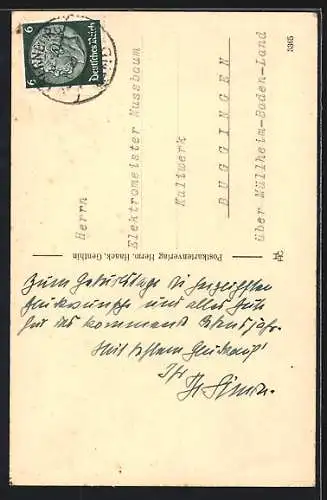 Herrn
Elektromeister Nussbaum
Kaliwerk
BUGGINGEN
über Müllheim-Baden-Land
Deutsches Reich
6 6
3365
Postkartenverlag Herm. Haack, Genthin
Zum Geburtstage die herzlichsten
Glückwünsche und alles Gute
für das kommende Lebensjahr.
Mit Glückauf!
Ihr
Th. Simon.